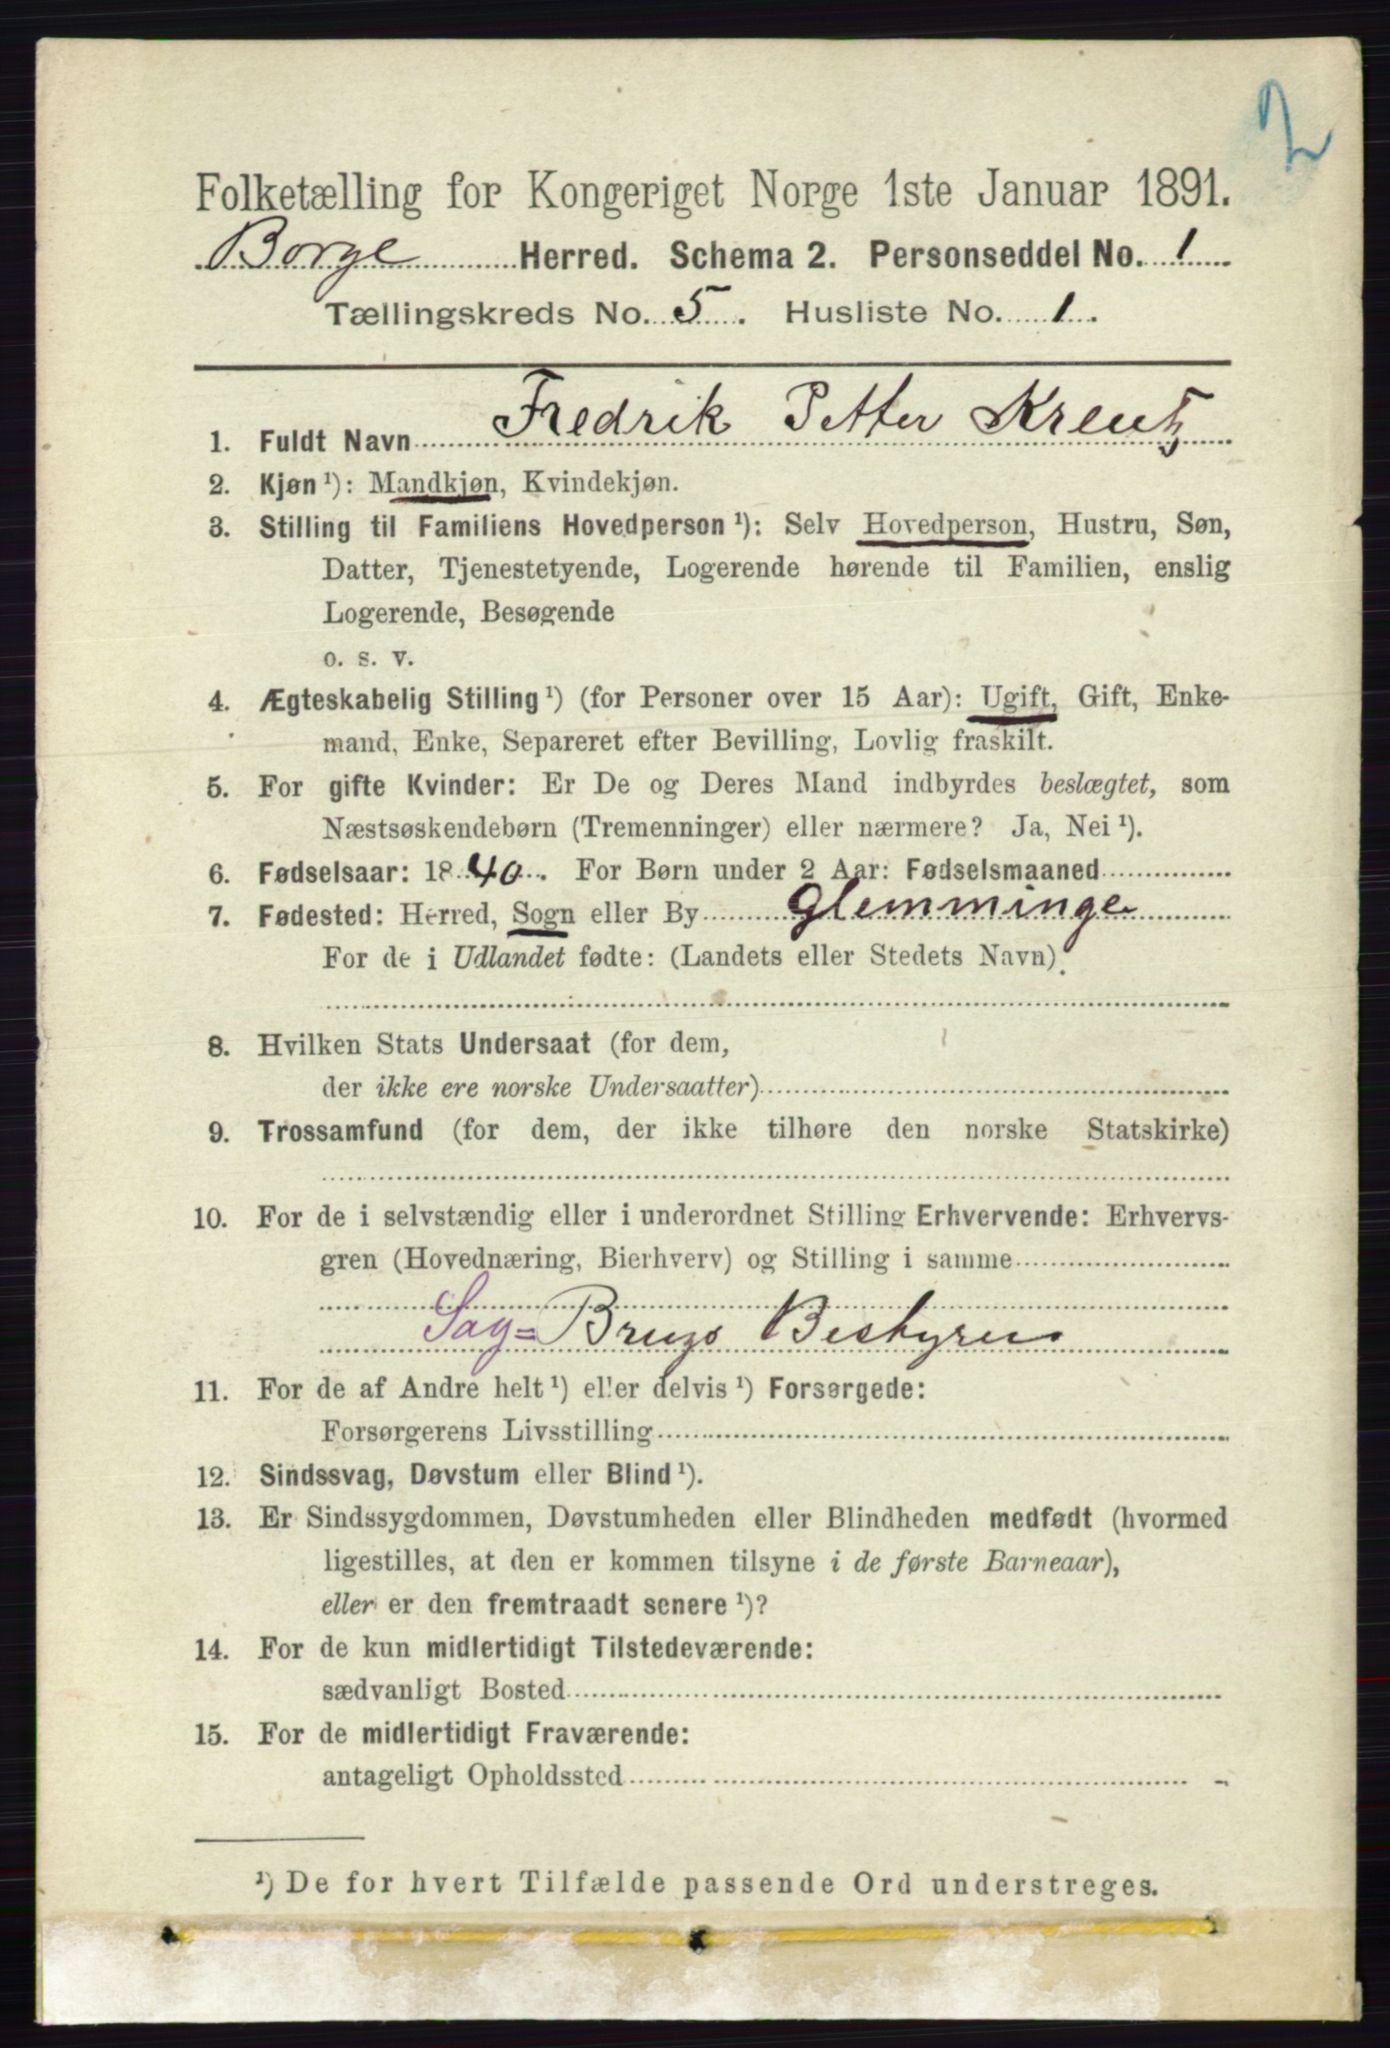 2
Folketælling for Kongeriget Norge 1ste Januar 1891.
Borge Herred. Schema 2. Personseddel No. 1
Tællingskreds No. 5. Husliste No. 1.
1. Fuldt Navn Fredrik Petter Kreutz
2. Kjøn ¹): Mandkjøn, Kvindekjøn.
3. Stilling til Familiens Hovedperson ¹): Selv Hovedperson, Hustru, Søn,
Datter, Tjenestetyende, Logerende hørende til Familien, enslig
Logerende, Besøgende
o. s. v.
4. Ægteskabelig Stilling ¹) (for Personer over 15 Aar): Ugift, Gift, Enke-
mand, Enke, Separeret efter Bevilling, Lovlig fraskilt.
5. For gifte Kvinder: Er De og Deres Mand indbyrdes beslægtet, som
Næstsøskendebørn (Tremenninger) eller nærmere? Ja, Nei ¹).
6. Fødselsaar: 1840. For Børn under 2 Aar: Fødselsmaaned
7. Fødested: Herred, Sogn eller By Glemminge
For de i Udlandet fødte: (Landets eller Stedets Navn).
8. Hvilken Stats Undersaat (for dem,
der ikke ere norske Undersaatter)
9. Trossamfund (for dem, der ikke tilhøre den norske Statskirke)
10. For de i selvstændig eller i underordnet Stilling Erhvervende: Erhvervs-
gren (Hovednæring, Bierhverv) og Stilling i samme
Sag= Brugs Bestyrer
11. For de af Andre helt ¹) eller delvis ¹) Forsørgede:
Forsørgerens Livsstilling
12. Sindssvag, Døvstum eller Blind ¹).
13. Er Sindssygdommen, Døvstumheden eller Blindheden medfødt (hvormed
ligestilles, at den er kommen tilsyne i de første Barneaar),
eller er den fremtraadt senere ¹)?
14. For de kun midlertidigt Tilstedeværende:
sædvanligt Bosted
15. For de midlertidigt Fraværende:
antageligt Opholdssted
¹) De for hvert Tilfælde passende Ord understreges.